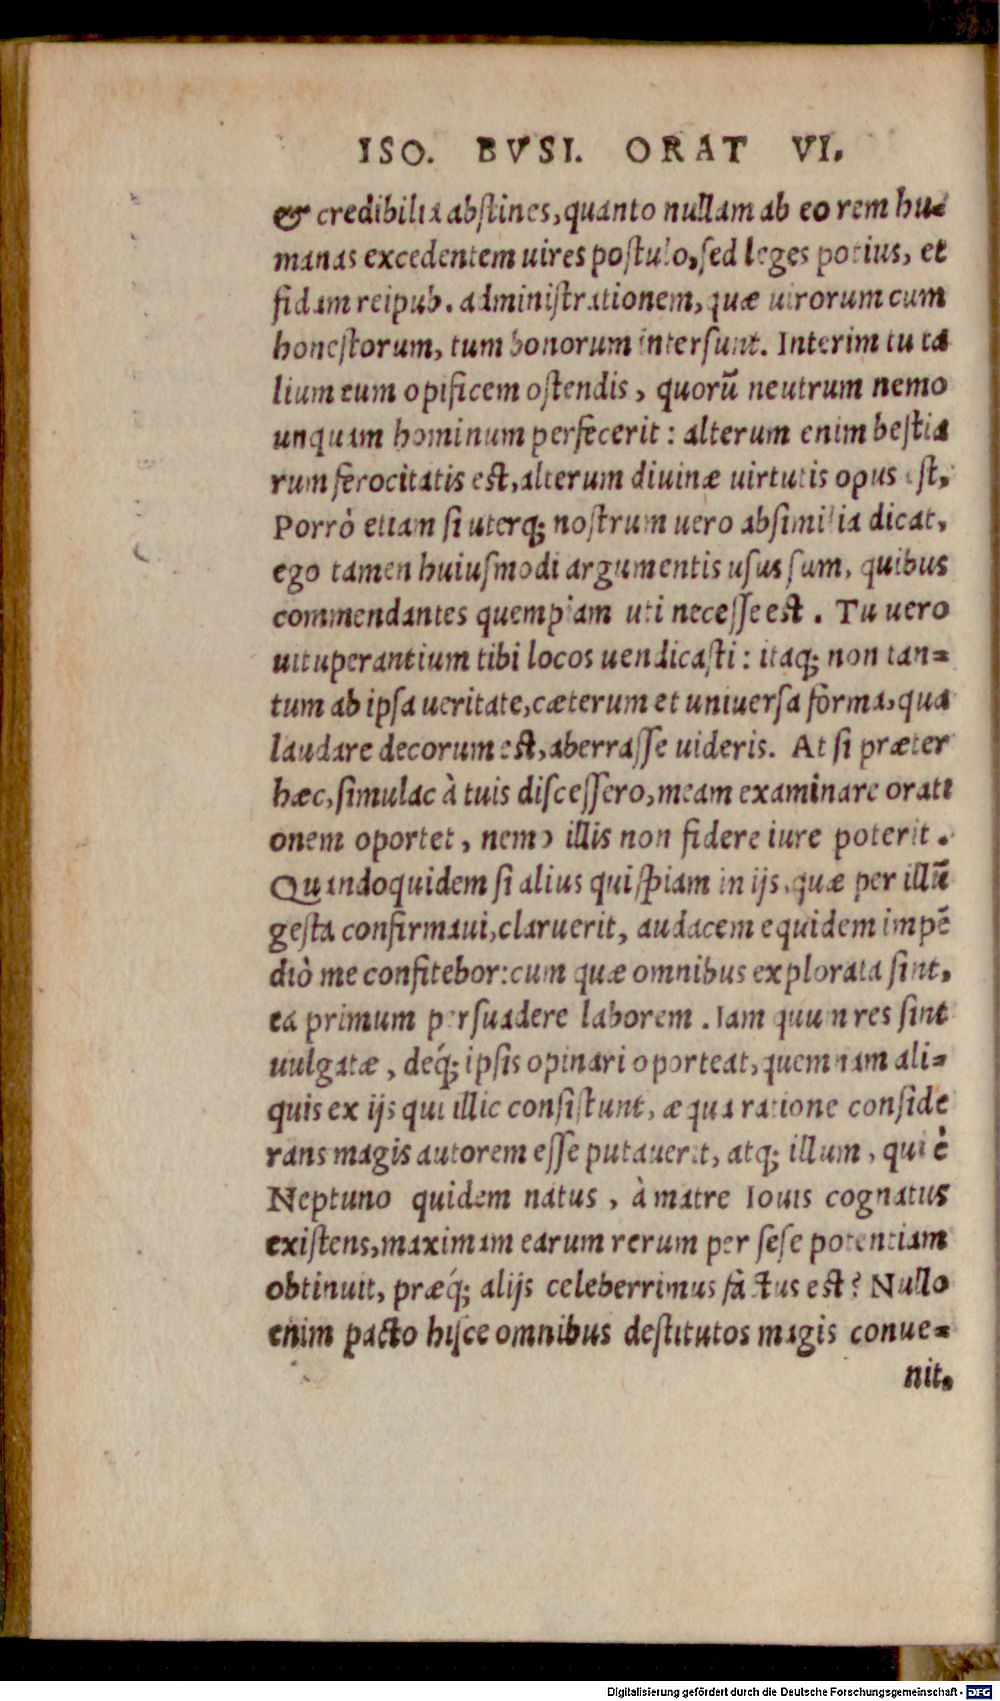 ISO. BVSI. ORAT VI.
& credibilia abſtines, quanto nullam ab eo rem hu-
manas excedentem uires poſtulo, ſed leges potius, et
fidam reipub. adminiſtrationem, quæ uirorum cum
honeſtorum, tum bonorum interſunt. Interim tu ta
lium eum opificem oſtendis, quorũ neutrum nemo
unquam hominum perfecerit: alterum enim beſtia
rum ferocitatis eſt, alterum diuinæ uirtutis opus eſt.
Porrò etiam ſi uterq; noſtrum uero abſimilia dicat,
ego tamen huiuſmodi argumentis uſus ſum, quibus
commendantes quempiam uti neceſſe eſt. Tu uero
uituperantium tibi locos uendicaſti: itaq; non tan-
tum ab ipſa ueritate, cæterum et uniuerſa forma, qua
laudare decorum eſt, aberraſſe uideris. At ſi præter
hæc, ſimulac à tuis diſceſſero, meam examinare orati
onem oportet, nemo illis non fidere iure poterit.
Quandoquidem ſi alius quiſpiam in ijs, quæ per illũ
geſta confirmaui, claruerit, audacem equidem impẽ
diò me confitebor: cum quæ omnibus explorata ſint,
ea primum perſuadere laborem. Iam quum res ſint
uulgatæ, deq́; ipſis opinari oporteat, quemnam ali-
quis ex ijs qui illic conſiſtunt, æqua ratione conſide
rans magis autorem eſſe putauerit, atq; illum, qui è
Neptuno quidem natus, à matre Iouis cognatus
exiſtens, maximam earum rerum per ſeſe potentiam
obtinuit, præq́; alijs celeberrimus factus eſt? Nullo
enim pacto hiſce omnibus deſtitutos magis conue-
nit.
Digitalisierung gefördert durch die Deutsche Forschungsgemeinschaft - DFG